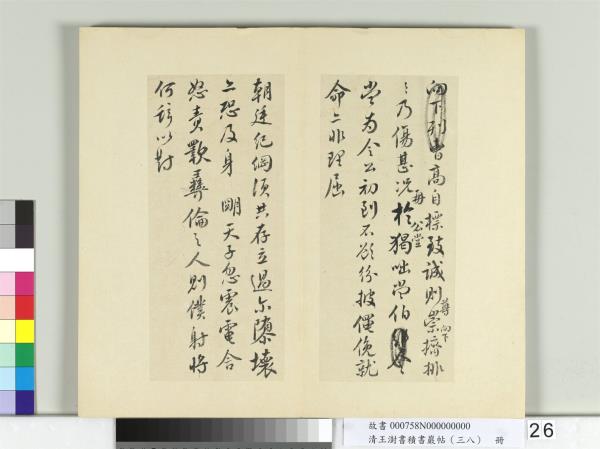 向下列曹高自標致誠則尊崇向下擠排
之乃傷甚況再於公堂獨咄常伯
當为令公初到不欲紛披僶俛就
命亦非理屈
朝廷紀綱須共存立過尒隳壞
亦恐及身明天子忽震電含
怒責斁彝倫之人則僕射將
何辞以對
故書 000758N000000000
清王澍書積書巖帖（三八） 冊
26